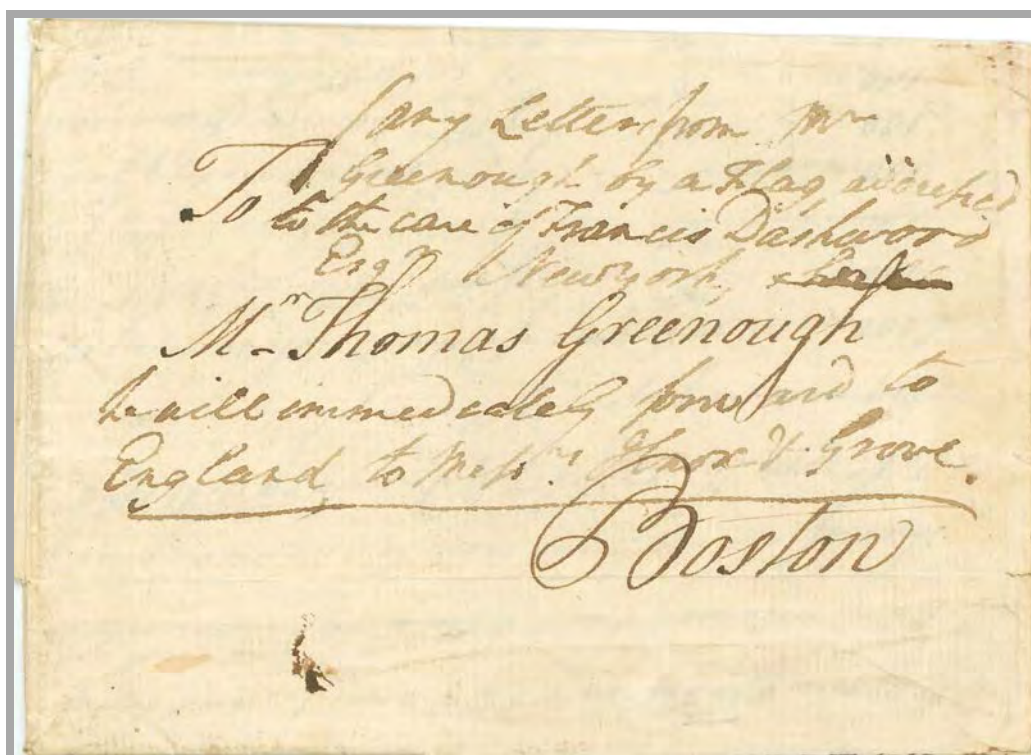 any Letter from Mr
Greenough by a Flag directed
To to the care of Francis Dashwood
Esqr New York,
Mr Thomas Greenough
he will immediately forward to
England to Messrs & Grove.
Boston